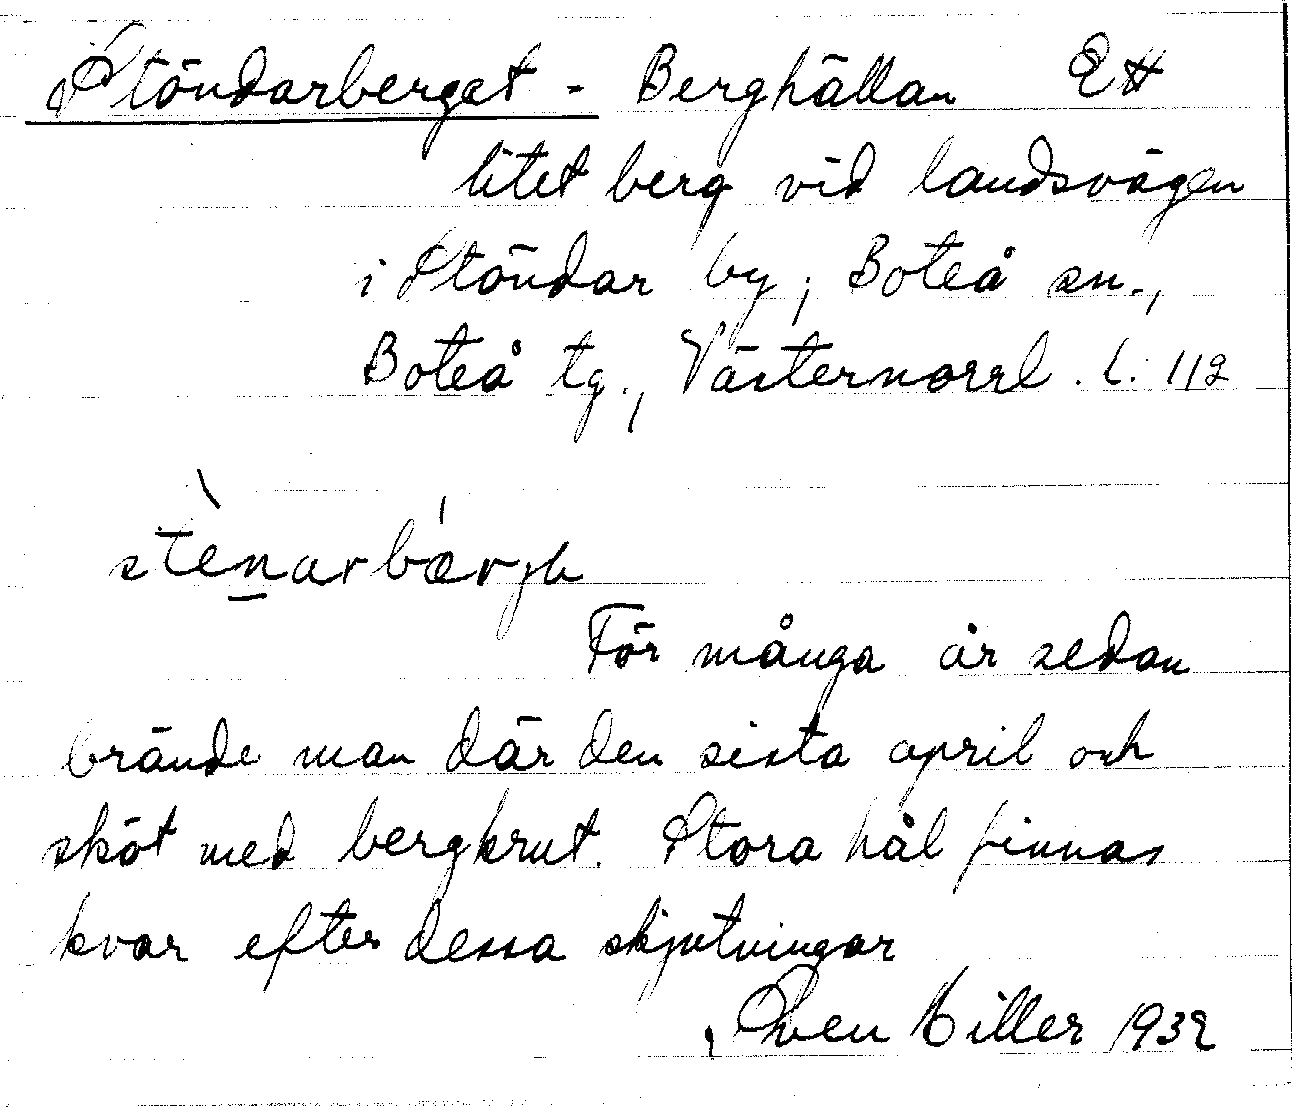 Stöndarberget - Berghällan Ett
litet berg vid landsvägen
i Stöndar by, Boteå sn.,
Boteå tg., Västernorrl. l. 112
stènarbærjh
För många år sedan
brände man där den sista april och
sköt med bergkrut. Stora hål finnas
kvar efter dessa skjutningar
Sven Hiller 1932